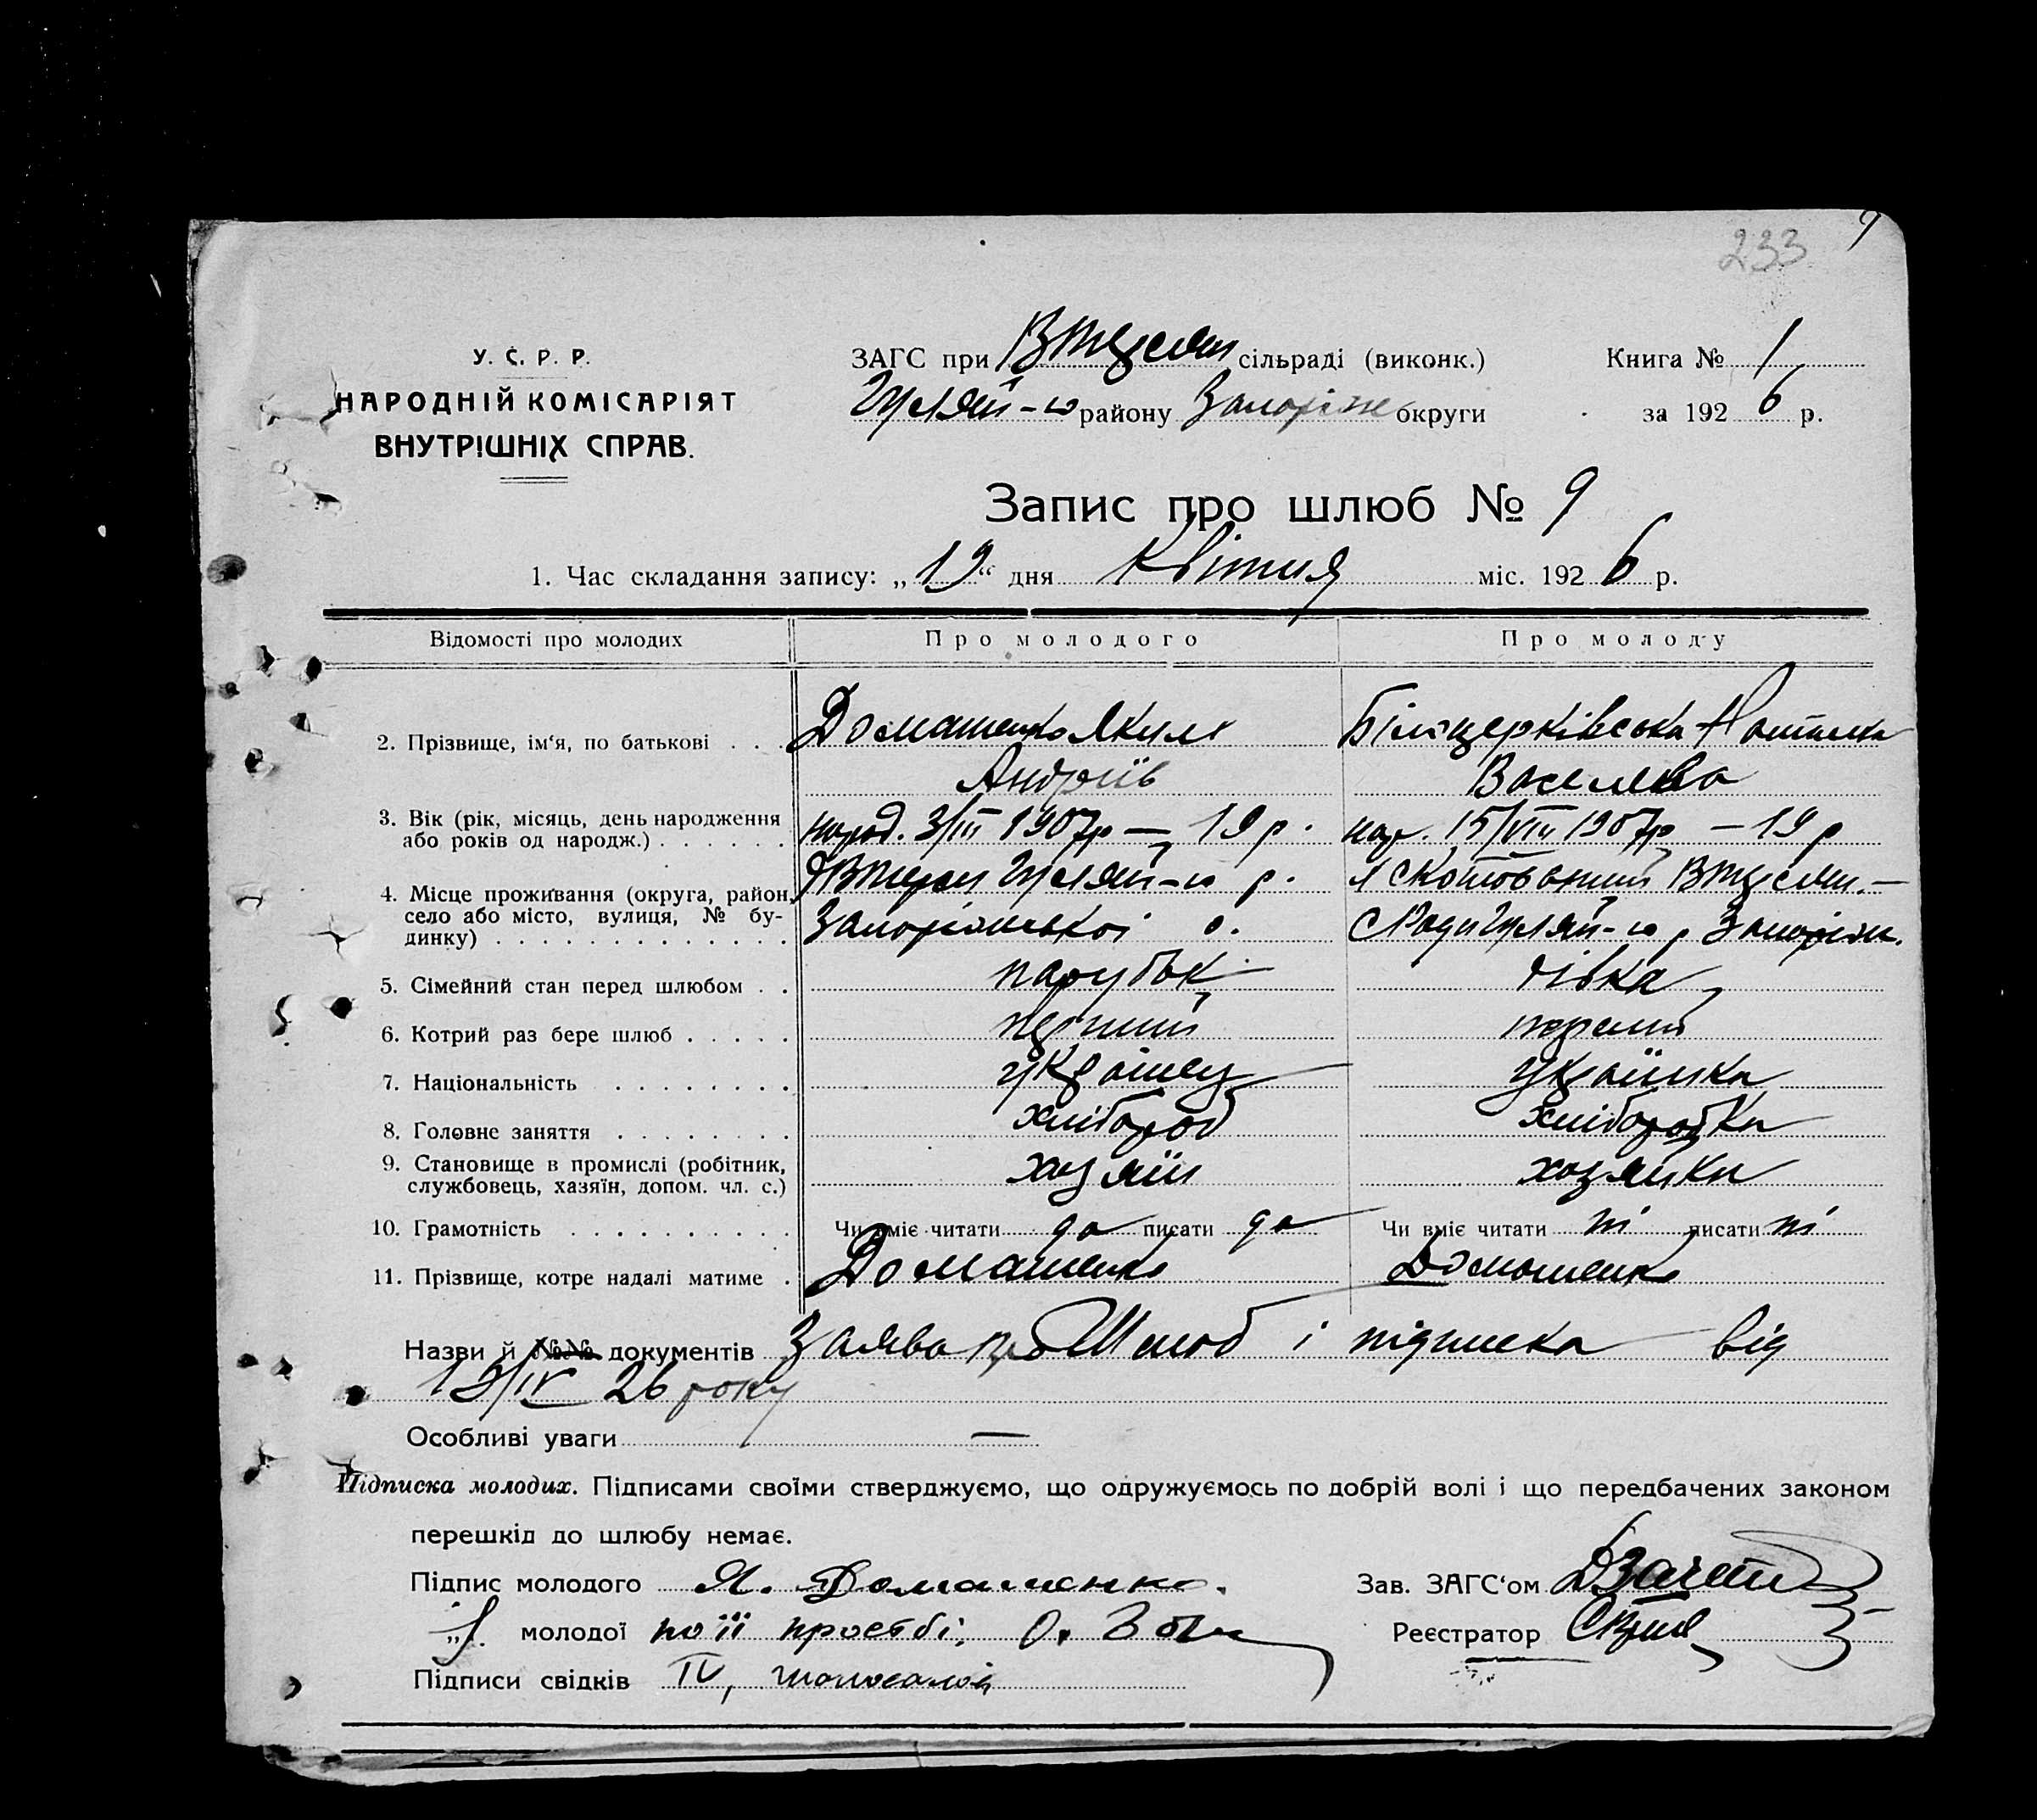 233 9
У. С. Р. Р.
НАРОДНІЙ КОМІСАРІЯТ
ВНУТРІШНІХ СПРАВ.
ЗАГС при сільраді (виконк.) Книга № 1
Гуляй-ю району Запоріж округи за 1926 р.
Запис про шлюб № 9
1. Час складання запису: „19“ дня Квітня міс. 1926 р.
Відомості про молодих Про молодого Про молоду
2. Прізвище, ім‘я, по батькові . . . Домашенко Яким Білицерківська Наталка
Андріїв Василева
3. Вік (рік, місяць, день народження або років од народж.) . . . . . . народ. 3/III 1907р — 19 р. нар. 15/VIII 1907р — 19 р
4. Місце проживання (округа, район, село або місто, вулиця, № будинку) . . . . . . . . . . . . . Гуляй-ю р. Запоріжської о. Ради Гуляй-ю р Запоріж.
5. Сімейний стан перед шлюбом . . парубок дівка
6. Котрий раз бере шлюб . . . . . перший перший
7. Національність . . . . . . . . українец українка
8. Головне заняття . . . . . . . . хлібороб хліборобка
9. Становище в промислі (робітник, службовець, хазяїн, допом. чл. с.) хозяїн хозяйка
10. Грамотність . . . . . . . . . . Чи вміє читати да писати да Чи вміє читати ні писати ні
11. Прізвище, котре надалі матиме . Домашенко Домашенко
Назви й №№ документів Заява про Шлюб і підписка від
19/IV 26 року
Особливі уваги —
Підписка молодих. Підписами своїми стверджуємо, що одружуємось по добрій волі і що передбачених законом
перешкід до шлюбу немає.
Підпис молодого Я. Домашенко. Зав. ЗАГС‘ом
„ молодої по її простбі. О. Реєстратор
Підписи свідків IV,